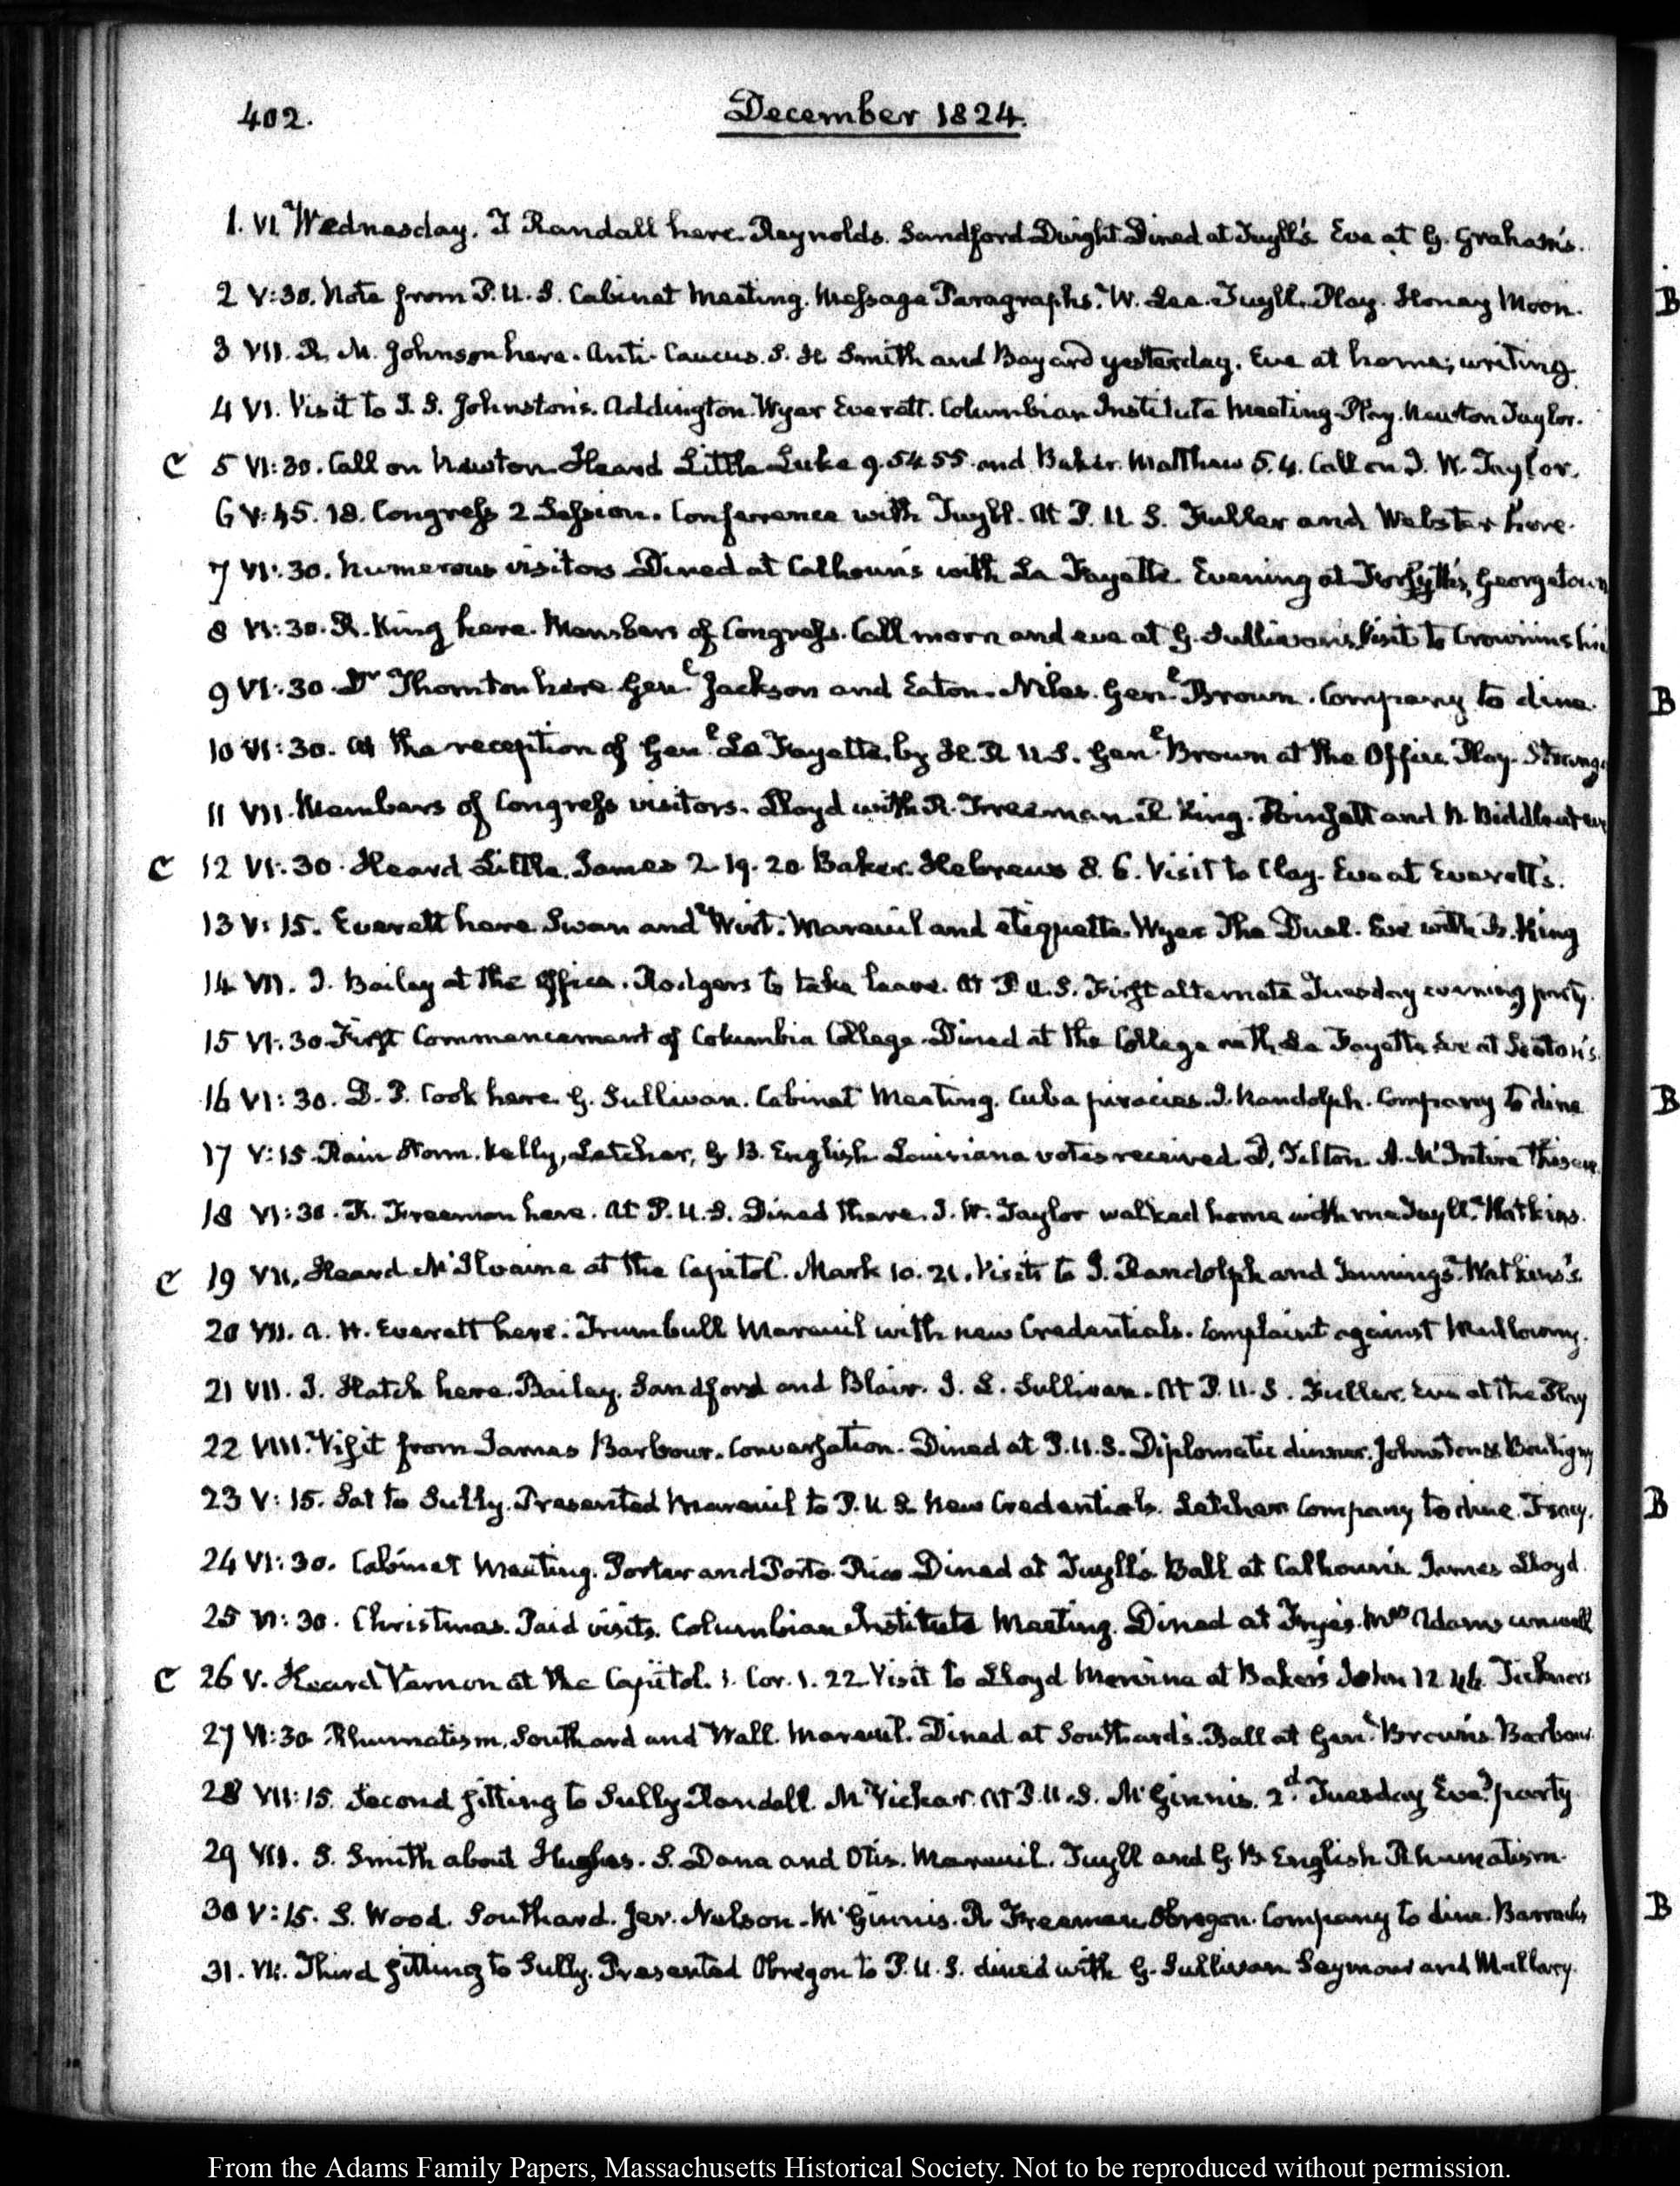 402.
December 1824.
1. VI. Wednesday. T Randall here. Reynolds. Sandford Dwight. Dined at Tuyll's. Eve at G. Graham's.
2 V:30. Note from P.U.S. Cabinet Meeting. Message Paragraphs. W. Lee. Tuyll. Play. Honey Moon.
B
3 VII. R. M. Johnson here. Anti-Caucus. S. H Smith and Bayard yesterday. Eve at home; writing.
4 VI. Visit to J. S. Johnston's. Addington. Wyer Everett. Columbian Institute Meeting. Play. Newton Taylor.
C 5 VI:30. Call on Newton. Heard Little Luke 9. 54 55 and Baker. Matthew 5. 4. Call on J. W. Taylor.
6 V:45. 18. Congress 2 Session. Conference with Tuyll. At P. U. S. Fuller and Webster here.
7 VI:30. Numerous visitors Dined at Calhoun's with La Fayette. Evening at Forsyth's, Georgetown
8 VI:30. R. King here. Members of Congress. Call morn and eve at G. Sullivan's. Visit to Crownins
9 VI:30. Dr Thornton here. Genl Jackson and Eaton. Niles. Genl Brown. Company to dine.
B
10 VI:30. At the reception of Genl La Fayette, by H. R U.S. Genl Brown at the Office. Play.
11 VII. Members of Congress visitors. Lloyd with R. Freeman. R King. Poinsett and N. Biddle at eve
C 12 VI:30. Heard Little. James 2 19. 20. Baker. Hebrews 8. 6. Visit to Clay. Eve at Everett's.
13 V:15. Everett here. Swan and Wirt. Mareuil and etiquette. Wyer The Duel. Eve with R. King
14 VII. J. Bailey at the Office. Rodgers to take leave. At P. U.S. First alternate Tuesday evening party.
15 VI:30. First Commencement of Columbia College. Dined at the College with La Fayette. Eve at Seaton's.
16 VI:30. D. P. Cook here. G. Sullivan. Cabinet Meeting. Cuba piracies. J. Randolph. Company to dine
B
17 V:15. Rain Storm. Kelly, Letcher, G B. English. Louisiana votes received. A. McIntire this eve.
18 VI:30. R. Freeman here. At P. U. S. Dined there. J. W. Taylor walked home with me Tuyll. Watkins.
C 19 VII. Heard McIlvaine at the Capitol. Mark 10. 21. Visits to J. Randolph and Jennings. Watkins's.
20 VII. A. H. Everett here. Trumbull Mareuil with new Credentials. Complaint against Mullowny.
21 VII. J. Hatch here. Bailey. Sandford and Blair. J. L. Sullivan. At P. U. S. Fuller. Eve at the Play
22 VIII. Visit from James Barbour. Conversation. Dined at P.U.S. Diplomatic dinner. Johnston & Bouligny
23 V:15. Sat to Sully. Presented Mareuil to P. U S. New Credentials. Letcher Company to dine.
B
24 VI:30. Cabinet Meeting. Porter and Porto-Rico. Dined at Tuyll's. Ball at Calhoun's James Lloyd
25 VI:30. Christmas. Paid visits. Columbian Institute Meeting. Dined at Frye's. Mrs Adams unwell
C 26 V. Heard Vernon at the Capitol. 1. Cor. 1. 22. Visit to Lloyd. at Baker's John 12 46. Ticknors
27 VI:30. Rhumatism. Southard and Wall. Mareuil. Dined at Southard's. Ball at Genl Brown's. Barbour
28 VII:15. Second sitting to Sully. Randall. McVickar. At P.U.S. McGinnis. 2d Tuesday Eveg party
29 VII. S. Smith about Hughes. S. Dana and Otis. Mareuil. Tuyll and G B English. Rhumatism.
30 V:15. S. Wood. Southard. Jer. Nelson. McGinnis. R Freeman. Obregon. Company to dine. Barracks
B
31. VII. Third sitting to Sully. Presented Obregon to P. U. S. dined with G. Sullivan. Seymour and Mallary.
From the Adams Family Papers, Massachusetts Historical Society. Not to be reproduced without permission.